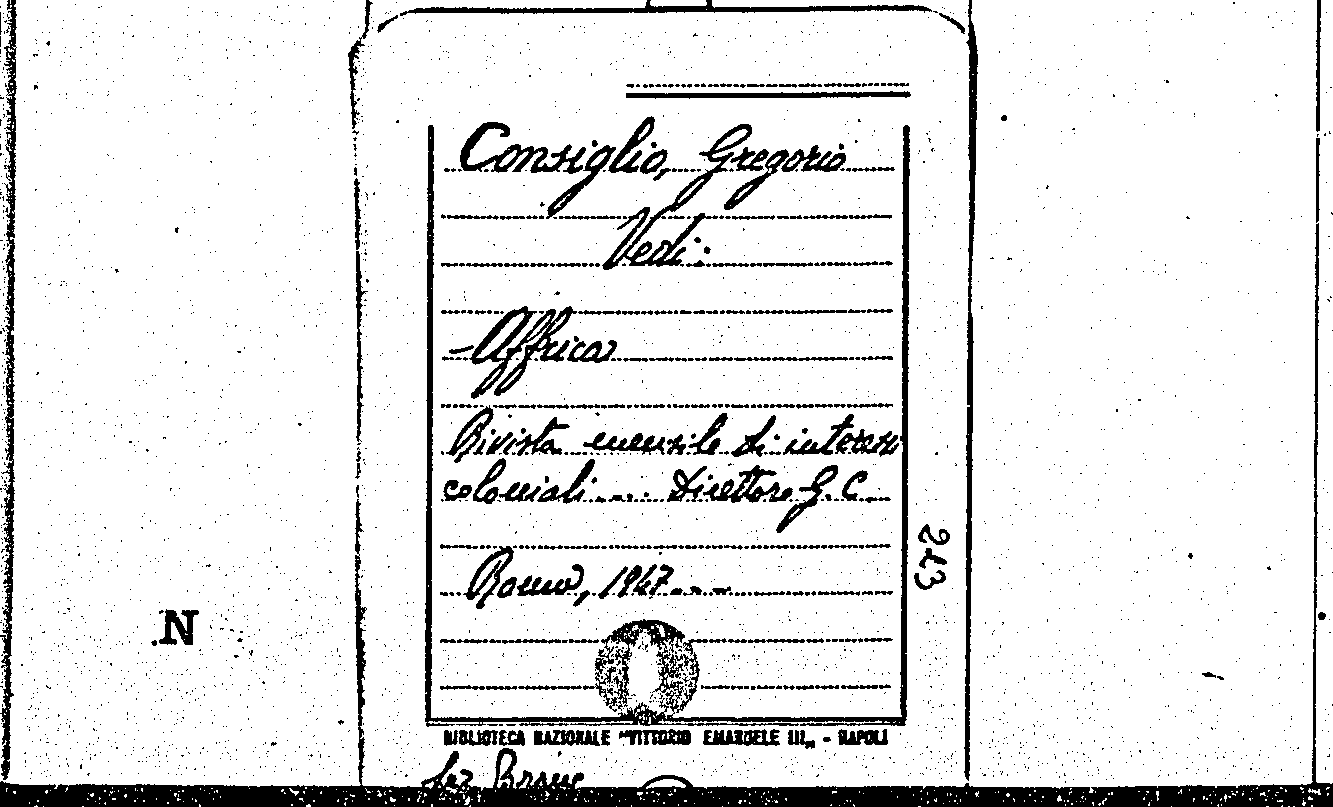 Consiglio, Gregorio
Vedi:
- Affrica
Rivista mensile di interessi
coloniali.... Direttore G. C.
Roma, 1947...
213
N
BIBLIOTECA NAZIONALE "VITTORIO EMANUELE III„ - NAPOLI